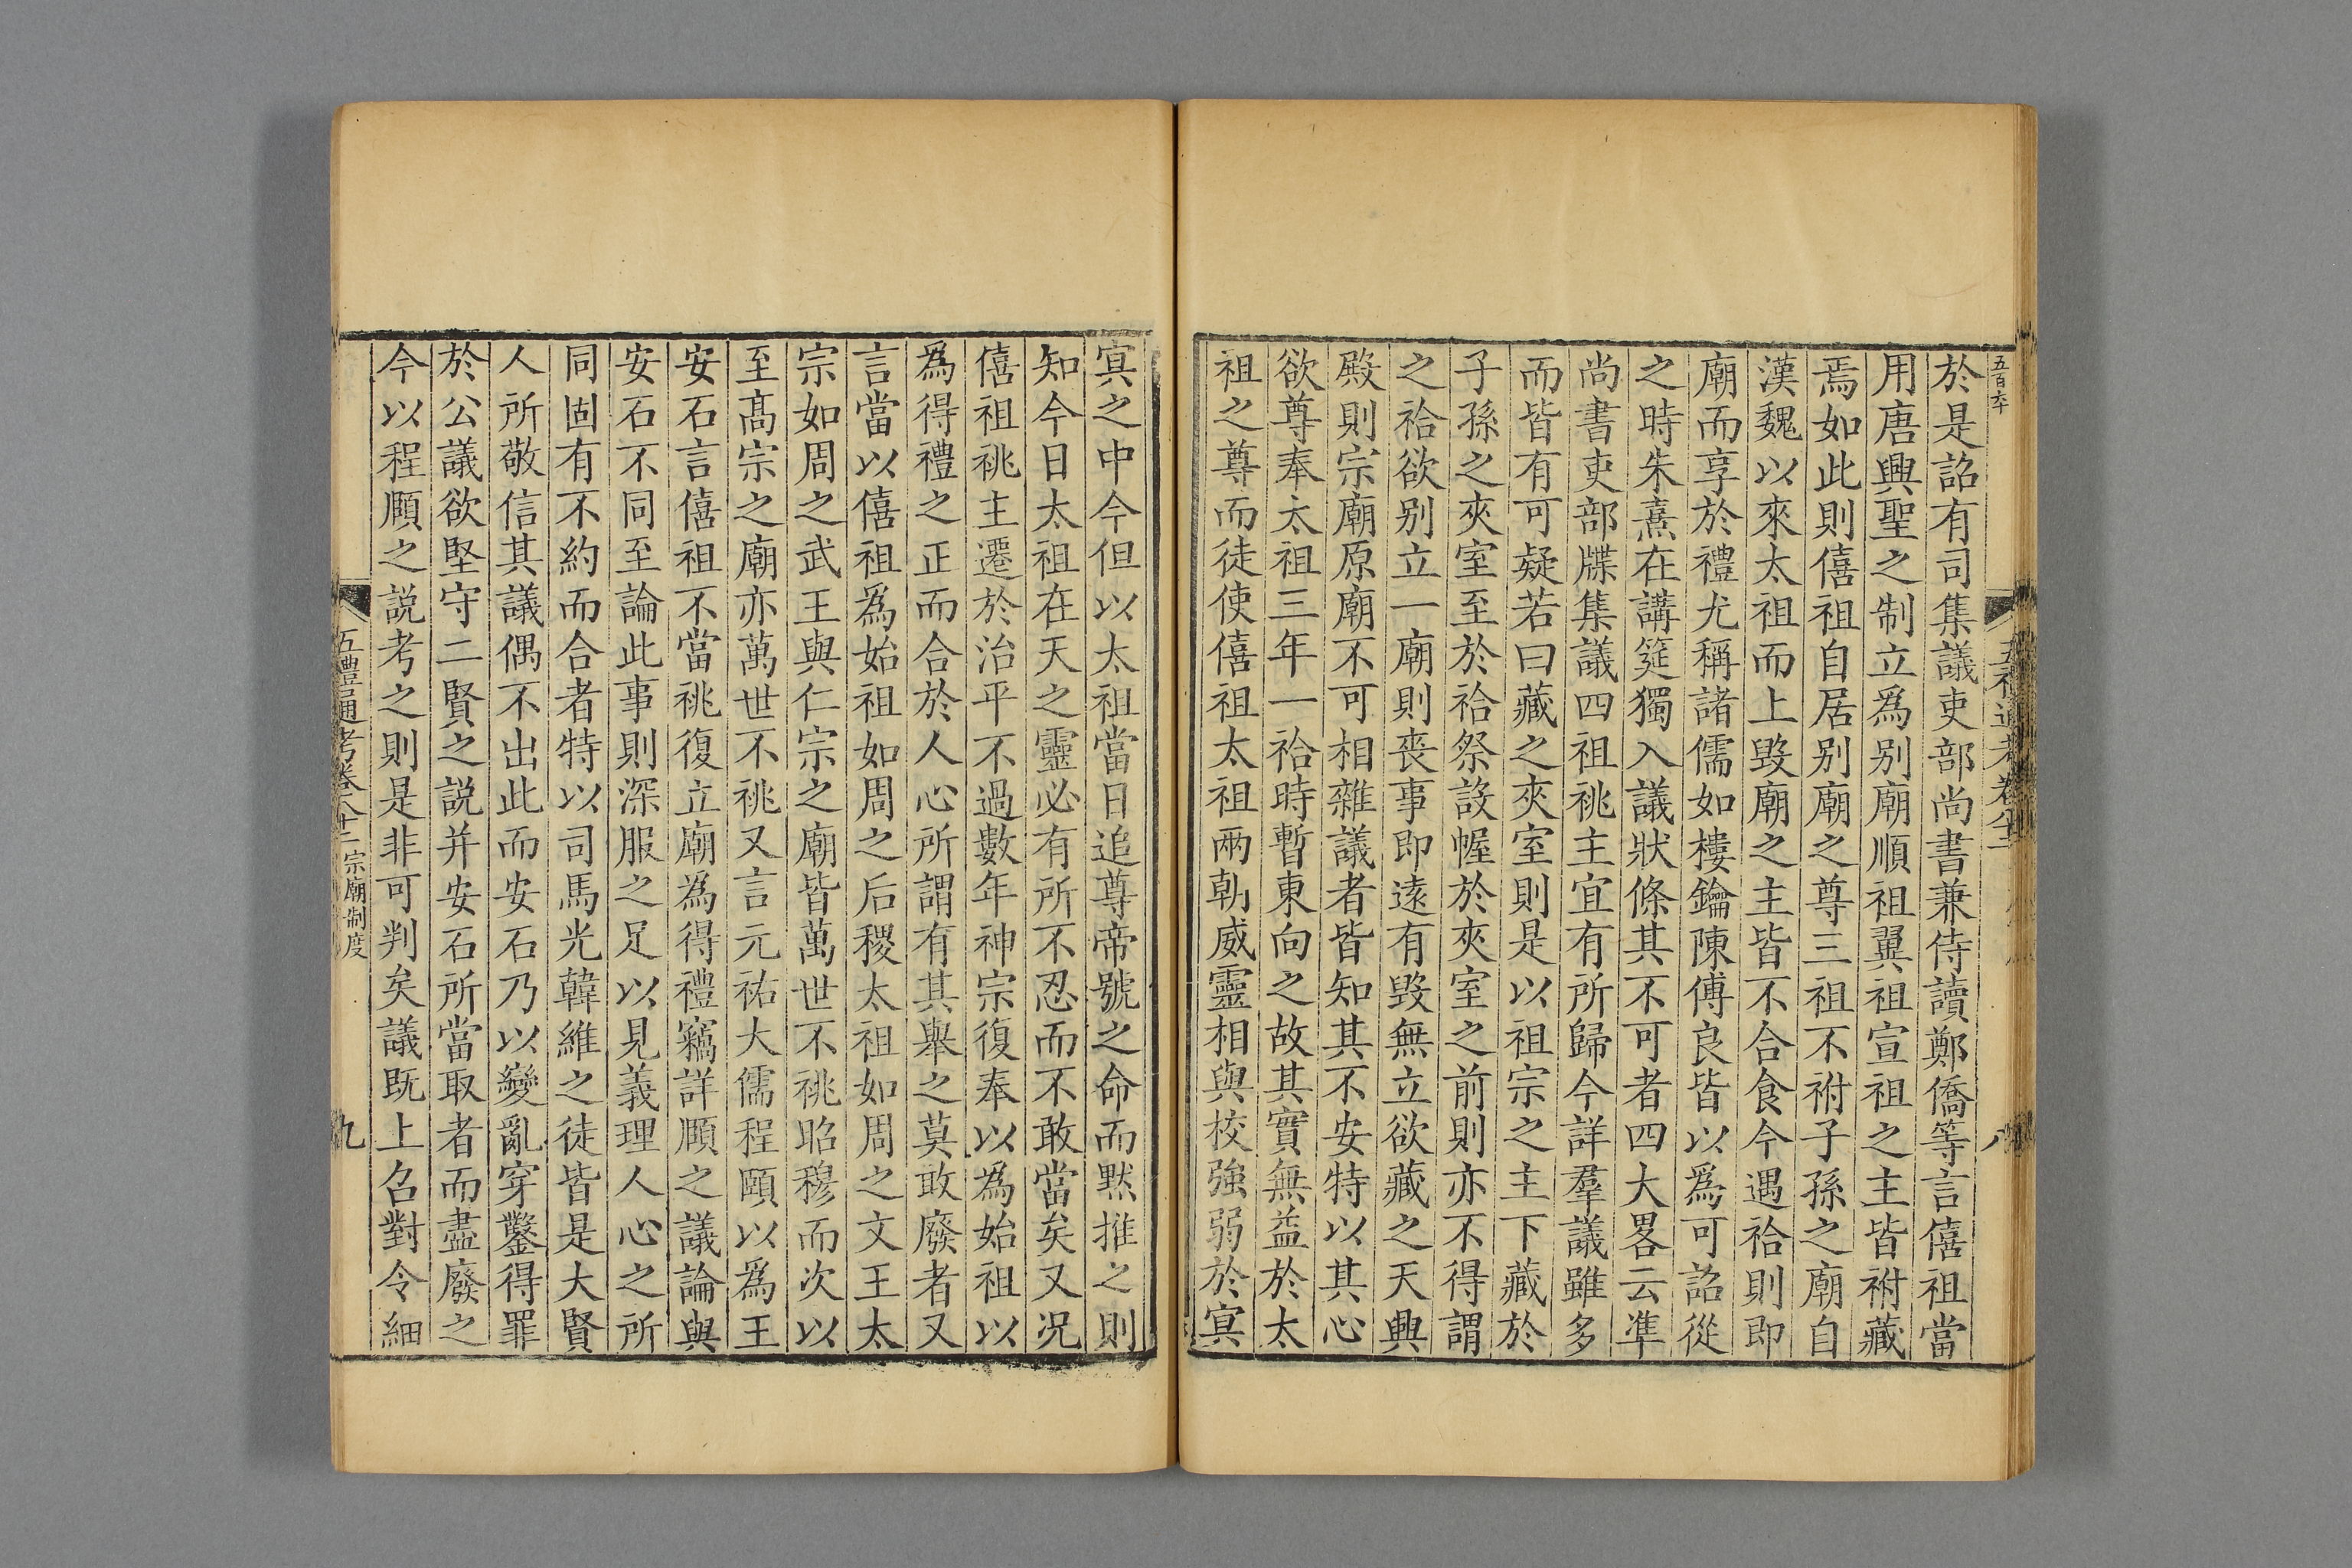 於是詔有司集議吏部尚書兼侍讀鄭僑等言僖祖當
用唐興聖之制立爲别廟順祖翼祖宣祖之主皆祔藏
焉如此則僖祖自居别廟之尊三祖不祔子孫之廟自
漢魏以來太祖而上毁廟之主皆不合食今遇祫則即
廟而享於禮尤稱諸儒如樓鑰陳傅良皆以爲可詔從
之時朱熹在講筵獨入議狀條其不可者四大畧云準
尚書吏部牒集議四祖祧主宜有所歸今詳羣議雖多
而皆有可疑若曰藏之夾室則是以祖宗之主下藏於
子孫之夾室至於祫祭設幄於夾室之前則亦不得謂
之祫欲别立一廟則喪事即遠有毁無立欲藏之天興
殿則宗廟原廟不可相雜議者皆知其不安特以其心
欲尊奉太祖三年一祫時暫東向之故其實無益於太
祖之尊而徒使僖祖太祖兩廟威靈相與校強弱於冥
冥之中今但以太祖當日追尊帝號之命而默推之則
知今日太祖在天之靈必有所不忍而不敢當矣又况
僖祖祧主遷於治平不過數年神宗復奉以爲始祖以
爲得禮之正而合於人心所謂有其舉之莫敢廢者又
言當以僖祖爲始祖如周之后稷太祖如周之文王太
宗如周之武王與仁宗之廟皆萬世不祧昭穆而次以
至高宗之廟亦萬世不祧又言元祐大儒程頤以爲王
安石言僖祖不當祧復立廟爲得禮竊詳頤之議論與
安石不同至論此事則深服之足以見義理人心之所
同固有不約而合者特以司馬光韓維之徒皆是大賢
人所敬信其議偶不出此而安石乃以變亂穿鑿得罪
於公議欲堅守二賢之説并安石所當取者而盡廢之
今以程頤之説考之則是非可判矣議既上召對令細
五禮通考卷八十二 宗廟制度
九